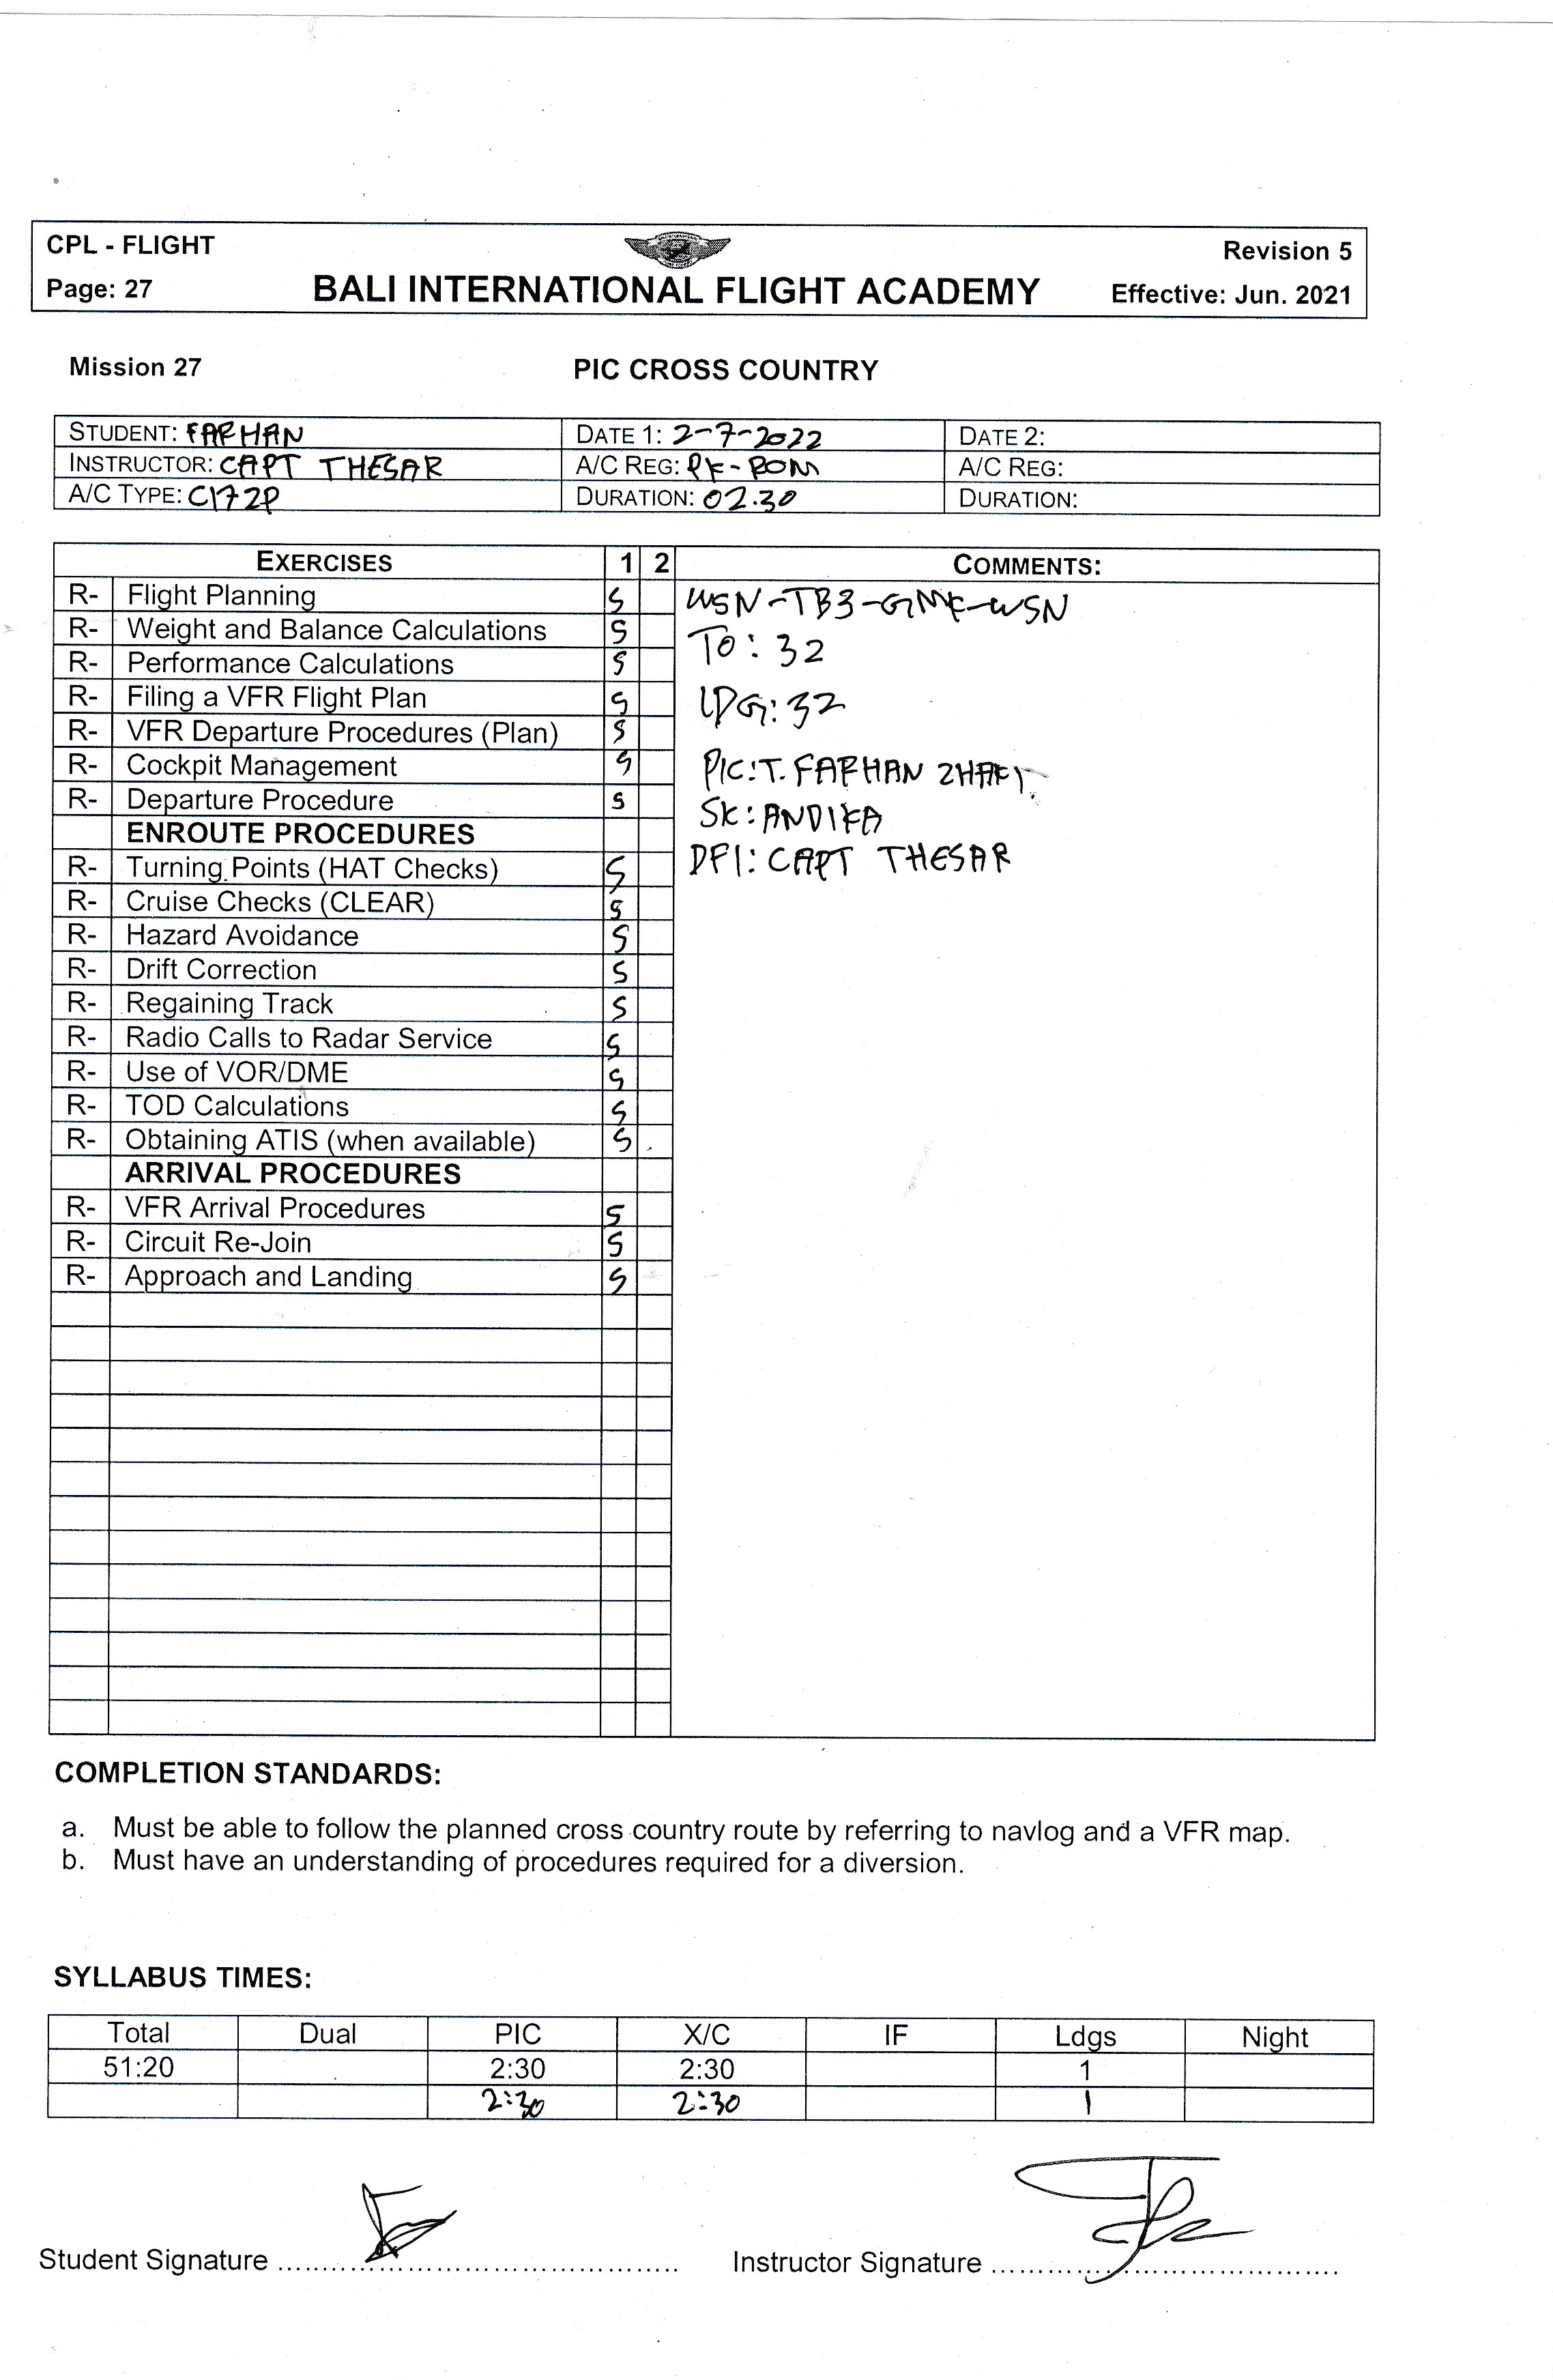 CPL - FLIGHT
Revision 5
Page: 27
BALI INTERNATIONAL FLIGHT ACADEMY
Effective: Jun. 2021
Mission 27
PIC CROSS COUNTRY
STUDENT: FARHAN
DATE 1: 2-7-2022
DATE 2:
INSTRUCTOR: CAPT THESAR
A/C REG: PK-ROM
A/C REG:
A/C TYPE: C172P
DURATION: 02.30
DURATION:
EXERCISES 1 2 COMMENTS:
R- Flight Planning S
WSN-TB3-GMK-WSN
R- Weight and Balance Calculations S
TO: 32
R- Performance Calculations S
R- Filing a VFR Flight Plan S
LDG: 32
R- VFR Departure Procedures (Plan) S
R- Cockpit Management S
PIC: T. FARHAN ZHAKY
R- Departure Procedure S
SK: ANDIKA
ENROUTE PROCEDURES
DFI: CAPT THESAR
R- Turning Points (HAT Checks) S
R- Cruise Checks (CLEAR) S
R- Hazard Avoidance S
R- Drift Correction S
R- Regaining Track S
R- Radio Calls to Radar Service S
R- Use of VOR/DME S
R- TOD Calculations S
R- Obtaining ATIS (when available) S
ARRIVAL PROCEDURES
R- VFR Arrival Procedures S
R- Circuit Re-Join S
R- Approach and Landing S
COMPLETION STANDARDS:
a. Must be able to follow the planned cross country route by referring to navlog and a VFR map.
b. Must have an understanding of procedures required for a diversion.
SYLLABUS TIMES:
Total Dual PIC X/C IF Ldgs Night
51:20 2:30 2:30 1
2:30 2:30 1
Student Signature ............................................
Instructor Signature ......................................